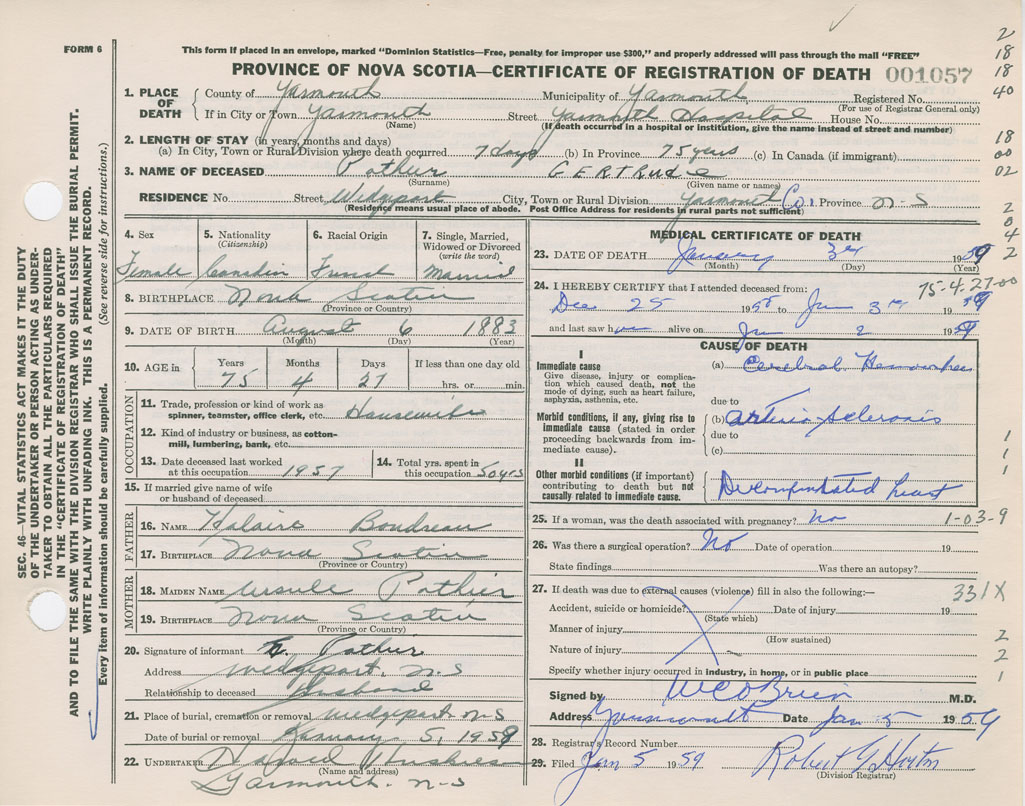 FORM 6
This form if placed in an envelope, marked "Dominion Statistics—Free, penalty for improper use $300," and properly addressed will pass through the mail "FREE"
PROVINCE OF NOVA SCOTIA—CERTIFICATE OF REGISTRATION OF DEATH 001057
1. PLACE OF DEATH
County of Yarmouth Municipality of Yarmouth Registered No.
(For use of Registrar General only)
If in City or Town Yarmouth Street Yarmouth Hospital House No.
(Name) (If death occurred in a hospital or institution, give the name instead of street and number)
2. LENGTH OF STAY (in years, months and days)
(a) In City, Town or Rural Division where death occurred 7 days (b) In Province 75 years (c) In Canada (if immigrant)
3. NAME OF DECEASED Pothier GERTRUDE
(Surname) (Given name or names)
RESIDENCE No. Street Wedgeport City, Town or Rural Division Yarmouth Co. Province N-S
(Residence means usual place of abode. Post Office Address for residents in rural parts not sufficient)
4. Sex
Female
5. Nationality
(Citizenship)
Canadian
6. Racial Origin
French
7. Single, Married, Widowed or Divorced
(write the word)
Married
8. BIRTHPLACE Nova Scotia
(Province or Country)
9. DATE OF BIRTH August 6 1883
(Month) (Day) (Year)
10. AGE in
Years Months Days If less than one day old
75 4 27 hrs. or min.
OCCUPATION
11. Trade, profession or kind of work as spinner, teamster, office clerk, etc. Housewife
12. Kind of industry or business, as cotton-mill, lumbering, bank, etc.
13. Date deceased last worked at this occupation 1957
14. Total yrs. spent in this occupation 50 yrs
15. If married give name of wife or husband of deceased
FATHER
16. NAME Hilaire Boudreau
17. BIRTHPLACE Nova Scotia
(Province or Country)
MOTHER
18. MAIDEN NAME Ursule Pothier
19. BIRTHPLACE Nova Scotia
(Province or Country)
20. Signature of informant Pothier
Address Wedgeport, N-S
Relationship to deceased Husband
21. Place of burial, cremation or removal Wedgeport N-S
Date of burial or removal January 5, 1959
22. UNDERTAKER
(Name and address)
Yarmouth, N-S
MEDICAL CERTIFICATE OF DEATH
23. DATE OF DEATH January 3rd 1959
(Month) (Day) (Year)
75-4-27-00
24. I HEREBY CERTIFY that I attended deceased from:
Dec 25 1958 to Jan 3rd 1959
and last saw her alive on Jan 2 1959
CAUSE OF DEATH
I
Immediate cause
Give disease, injury or complication which caused death, not the mode of dying, such as heart failure, asphyxia, asthenia, etc.
(a) Cerebral Hemorrhage
due to
Morbid conditions, if any, giving rise to immediate cause (stated in order proceeding backwards from immediate cause).
(b) Arterio Sclerosis
due to
(c)
II
Other morbid conditions (if important) contributing to death but not causally related to immediate cause.
Decompensated heart
25. If a woman, was the death associated with pregnancy? No 1-03-9
26. Was there a surgical operation? No Date of operation 19
State findings Was there an autopsy?
27. If death was due to external causes (violence) fill in also the following:— 331X
Accident, suicide or homicide? Date of injury 19
(State which)
Manner of injury
(How sustained)
Nature of injury
Specify whether injury occurred in industry, in home, or in public place
Signed by W C O'Brien M.D.
Address Yarmouth Date Jan 5 1959
28. Registrar's Record Number
29. Filed Jan 5 1959 Robert G Horton
(Division Registrar)
2
18
18
40
18
00
02
2
0
4
2
1
1
1
2
2
1
SEC. 46—VITAL STATISTICS ACT MAKES IT THE DUTY
OF THE UNDERTAKER OR PERSON ACTING AS UNDER-
TAKER TO OBTAIN ALL THE PARTICULARS REQUIRED
IN THE "CERTIFICATE OF REGISTRATION OF DEATH"
AND TO FILE THE SAME WITH THE DIVISION REGISTRAR WHO SHALL ISSUE THE BURIAL PERMIT.
WRITE PLAINLY WITH UNFADING INK. THIS IS A PERMANENT RECORD.
Every item of information should be carefully supplied. (See reverse side for instructions.)